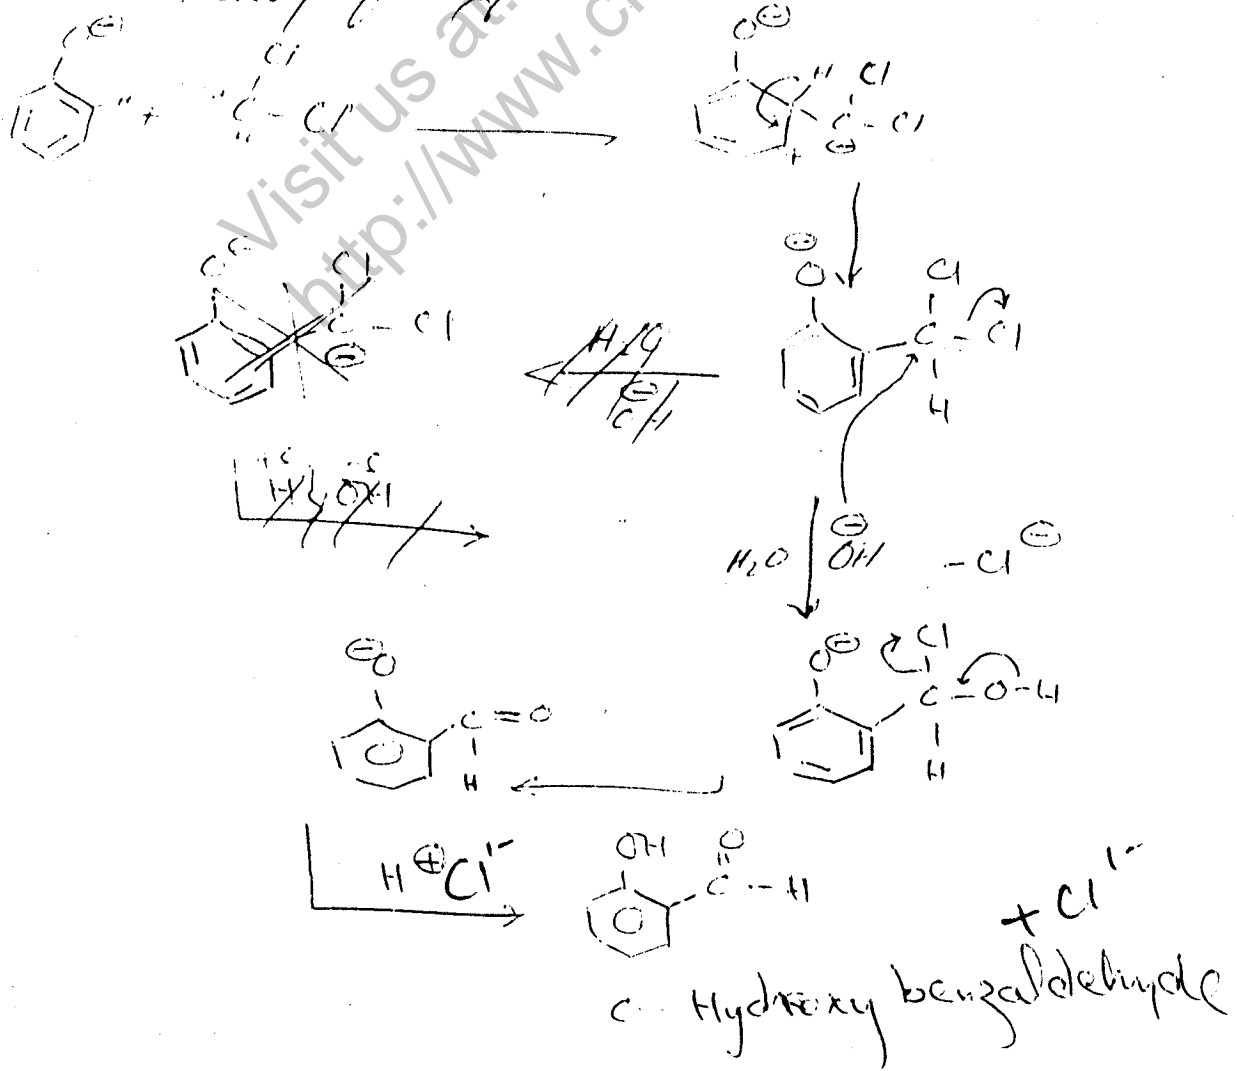 Visit us at:
http://www.c
O⊖
Cl
Cl
+
O⊖
H
Cl
C - Cl
⊖
+
Cl
C - Cl
⊖
H2O
⊖
OH
⊖
O
Cl
C - Cl
H
H OH
H2O
⊖
OH
- Cl⊖
⊖O
C = O
H
O⊖
Cl
C - O - H
H
H⊕Cl1-
OH
O
C - H
+ Cl1-
Hydroxy benzaldehyde